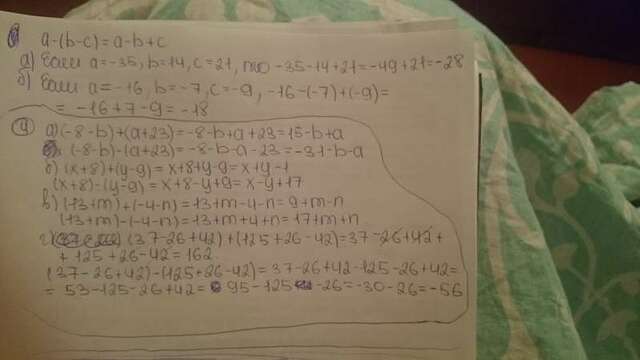 a-(b-c)=a-b+c
а) Если a=-35, b=14, c=21, то -35-14+21=-49+21=-28
б) Если a=-16, b=-7, c=-9, -16-(-7)+(-9)=
= -16+7-9=-18
④ а)(-8-b)+(a+23)=-8-b+a+23=15-b+a
(-8-b)-(a+23)=-8-b-a-23=-31-b-a
б) (x+8)+(y-9)=x+8+y-9=x+y-1
(x+8)-(y-9)=x+8-y+9=x-y+17
в)(13+m)+(-4-n)=13+m-4-n=9+m-n
(13+m)-(-4-n)=13+m+4+n=17+m+n
г) (37-26+42)+(125+26-42)=37-26+42+
+125+26-42=162
(37-26+42)-(125+26-42)=37-26+42-125-26+42=
= 53-125-26+42= 95-125 -26=-30-26=-56